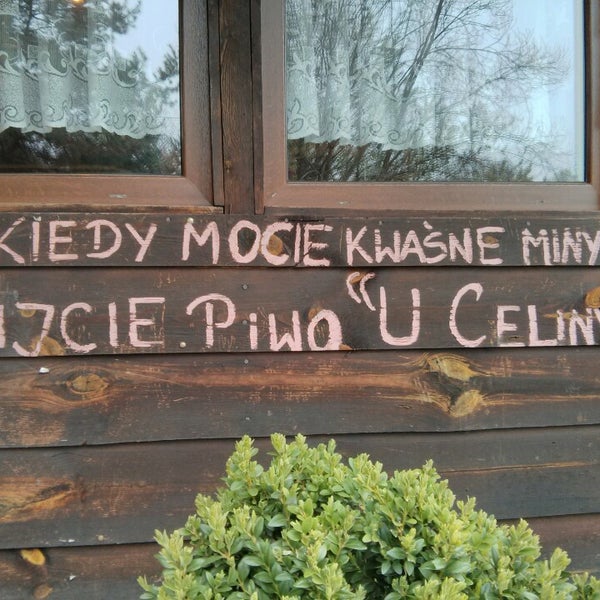 KIEDY MOCIE KWAŚNE MINY
IJCIE PIWO "U CELINY